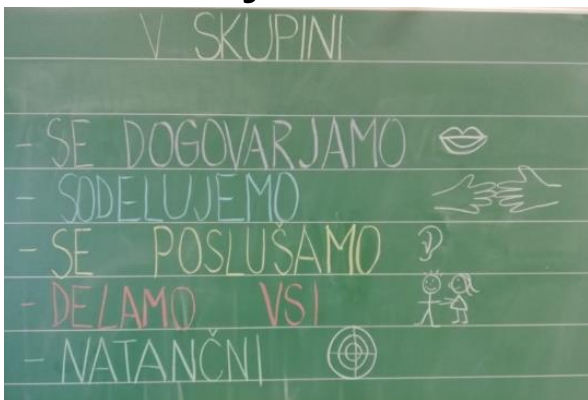 V SKUPINI
- SE DOGOVARJAMO
- SODELUJEMO
- SE POSLUŠAMO
- DELAMO VSI
- NATANČNI